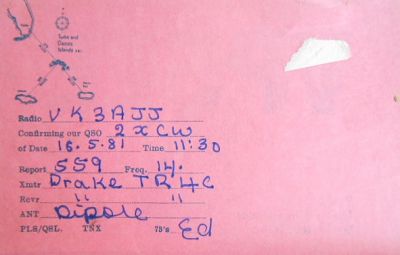 Turks and
Caicos
Islands
Radio VK3AJJ
Confirming our QSO 2 x CW
of Date 16.5.81 Time 11:30
Report 559 Freq. 14.
Xmtr Drake TR4C
Rcvr " "
ANT Dipole
PLS/QSL. TNX 73's Ed